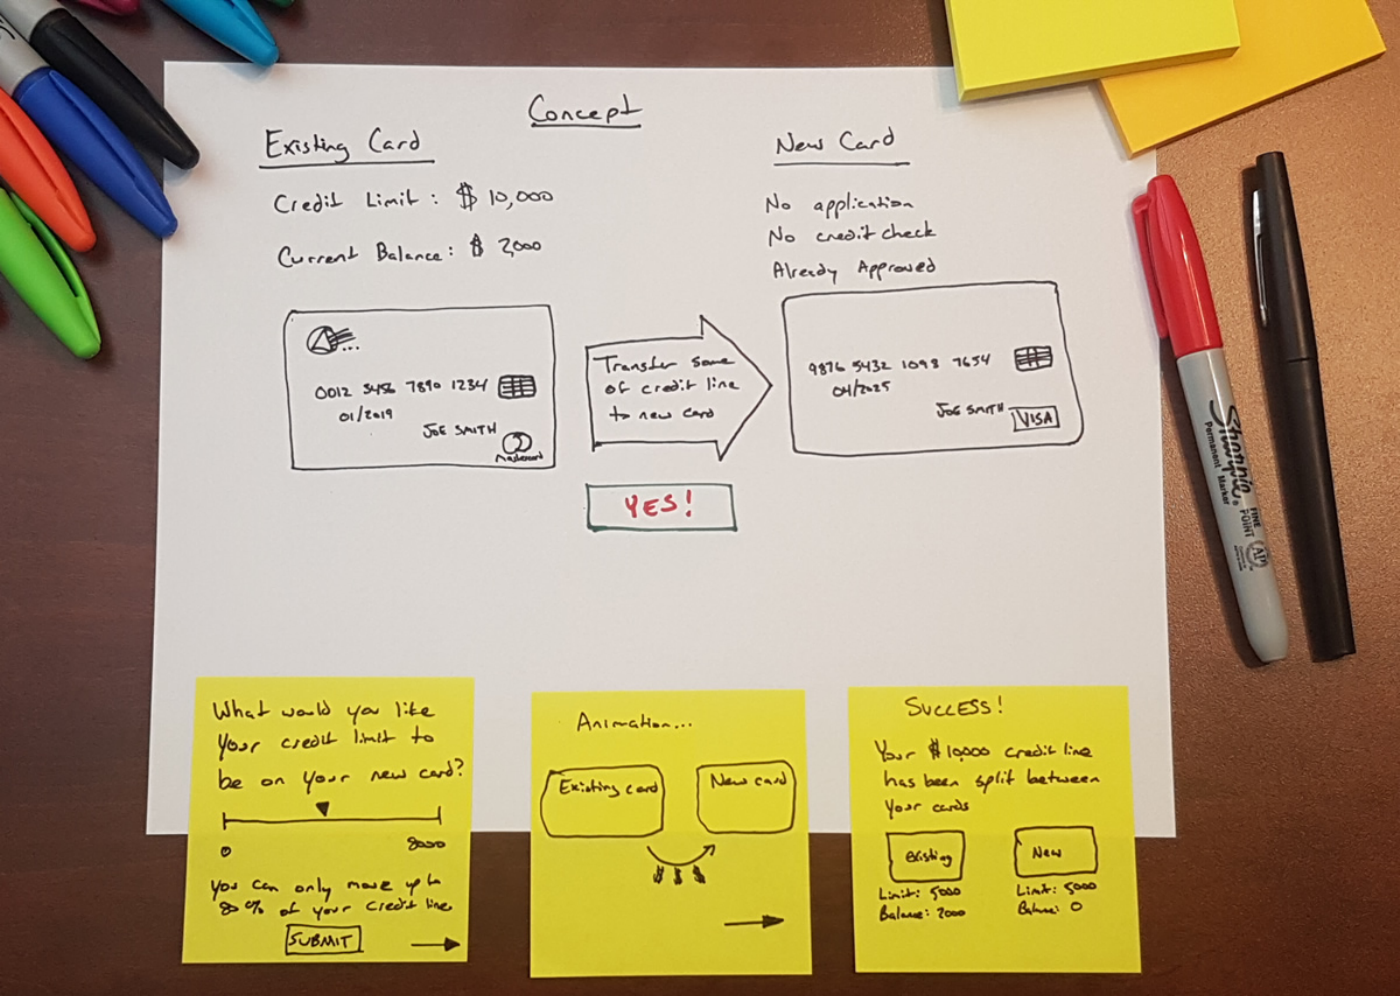 Concept
Existing Card
Credit Limit: $ 10,000
Current Balance: $ 2,000
0012 3456 7890 1234
01/2019
JOE SMITH
Mastercard
Transfer some
of credit line
to new card
YES!
New Card
No application
No credit check
Already Approved
9876 5432 1098 7654
04/2025
JOE SMITH
VISA
What would you like
your credit limit to
be on your new card?
0
8000
You can only move up to
80% of your credit line
SUBMIT
Animation...
Existing card
New card
$ $ $
SUCCESS!
Your $10,000 credit line
has been split between
your cards
Existing
Limit: 5000
Balance: 2000
New
Limit: 5000
Balance: 0
Sharpie
Permanent Marker
FINE
POINT
AP